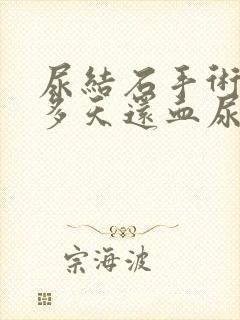 尿結石手術
多天還血尿
宗海波